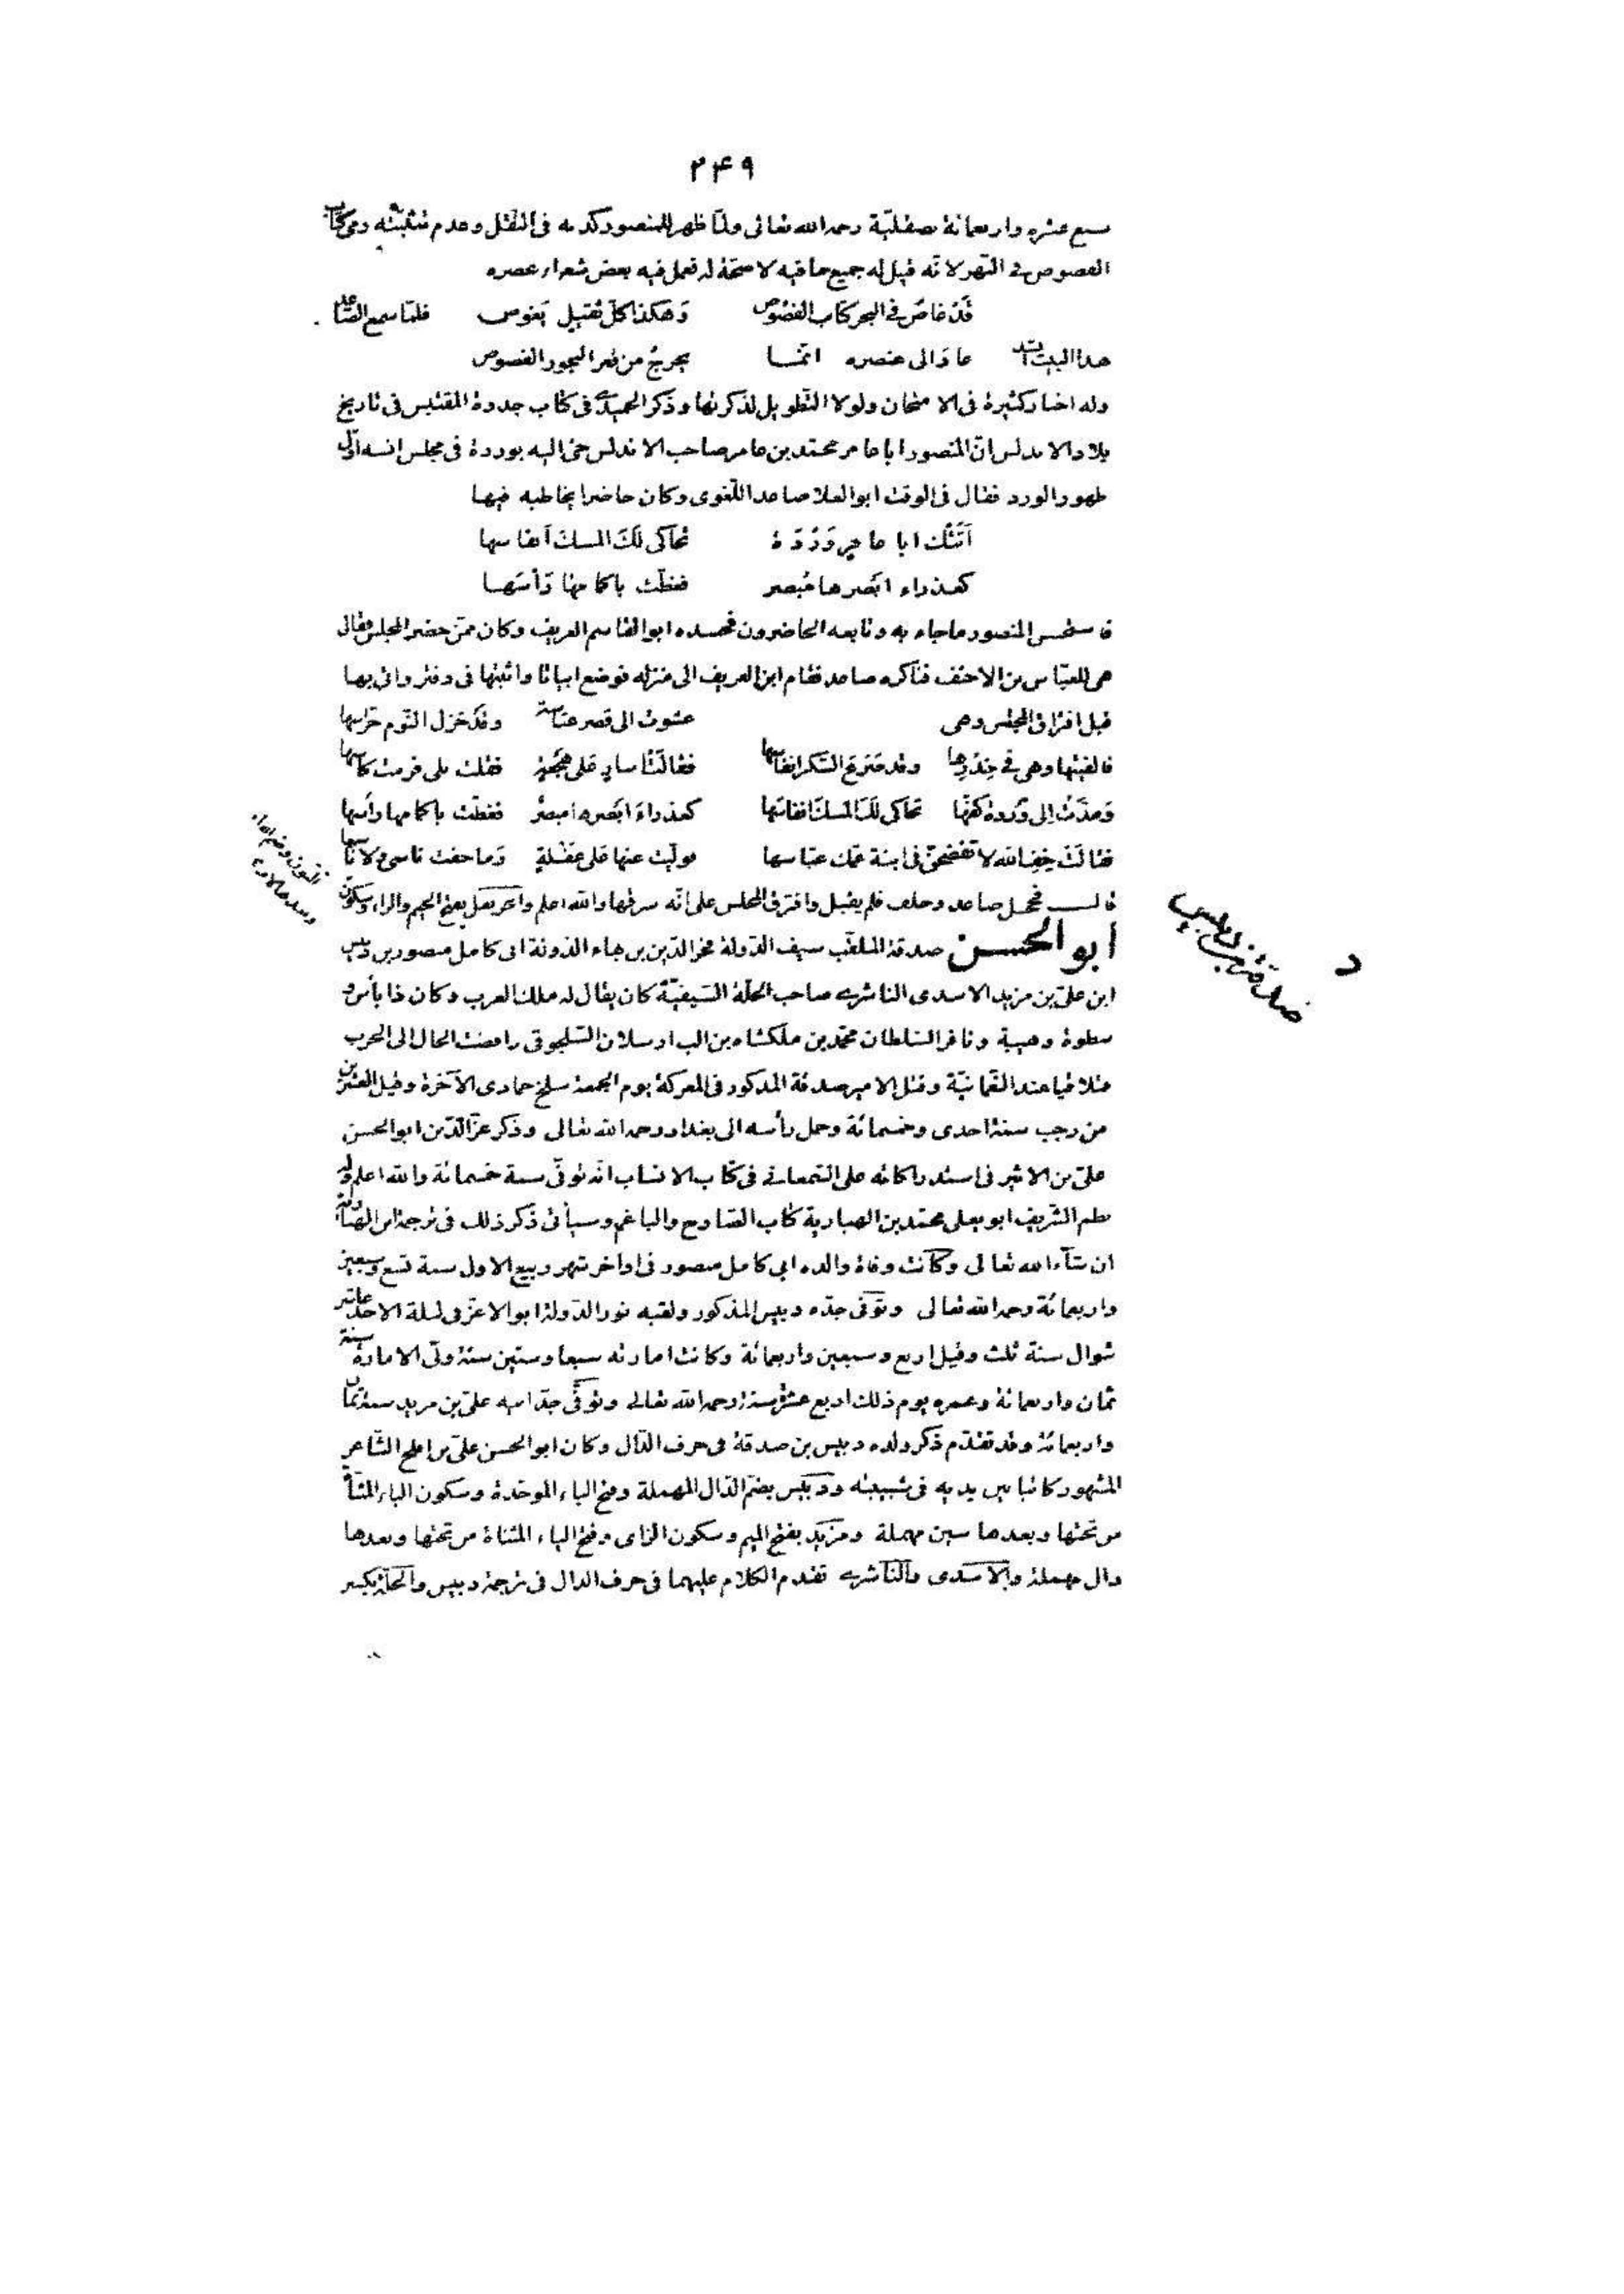 ۲۴۹
سبع عشره واربعمائة بصقلية رحمه الله تعالى ولما ظهر للمنصور كذبه فى النقل وعدم تثبته رمى كتاب
الفصوص فى النهر لانه قيل له جميع ما فيه لا صحة له فعمل فيه بعض شعراء عصره
قَدْ غاصَ فى البحر كتاب الفصوص وَهٰكذا كلّ ثقيل يَغوص فلمّا سمع الصّاعد
هذا البيت انشد عادَ الى عنصره انّما يخرجُ من قعر البحور الفصوص
وله اخبار كثيرة فى الامتحان ولولا التّطويل لذكرتها وذكر الحميدىّ فى كتاب جذوة المقتبس فى تاريخ
بلاد الاندلس انّ المنصور ابا عامر محمّد بن عامر صاحب الاندلس جئ اليه بوردة فى مجلس انسه اوّل
ظهور الورد فقال فى الوقت ابو العلا صاعد اللّغوى وكان حاضرا يخاطبه فيها
اَتَتْك ابا عامرٍ وَرْدَة تُحاكى لَكَ المسكَ اَنفاسها
كعذراء ابصَرها مُبصر فغطّت باكمامها رَأسَها
فاستحسن المنصور ما جاء به وتابعه الحاضرون فحسده ابو القاسم العريف وكان ممّن حضر المجلس فقال
هى للعبّاس بن الاحنف فناكره صاعد فقام ابن العريف الى منزله فوضع ابياتا واثبتها فى دفتر واتى بها
قبل افتراق المجلس وهى عشوت الى قصر عبّاسة وقد جدّل النّوم حرّاسها
فالفيتها وهى فى خِدْرِها وقد صَرَع السّكر انفاسها فقالَتْ أسارٍ عَلى هَجْعَةٍ فقلت بلى فرمت كاسها
وَمدّتْ اِلى وَردة كفّها تحاكى لَكَ المسكَ انفاسَها كعذراءَ ابصَرها مبصرٌ فغطّت باكمامها رأسها
فقالَتْ خِفِ الله لا تفضحنّ فى ابنة عمّك عبّاسها فولّيت عنها عَلى غفْلةٍ وَما خفت ناسى ولا ناسها
قال فخجل صاعد وحلف فلم يقبل وافترق المجلس على انّه سرقها والله اعلم بفتح الجيم والراء وسكون
النون
وبعدها لام
ابو الحسن صدقة الملقّب سيف الدّولة فخر الدّين بن بهاء الدّولة ابى كامل منصور بن دبيس
ابن علىّ بن مزيد الاسدى الناشرى صاحب الحلّة السّيفيّة كان يقال له ملك العرب وكان ذا بأس و
سطوة وهيبة ونافر السّلطان محمّد بن ملكشاه بن الب ارسلان السّلجوقى وافضت الحال الى الحرب
فتلاقيا عند النّعمانيّة وقتل الامير صدقة المذكور فى المعركة يوم الجمعة سلخ جمادى الآخرة وقيل العشرين
من رجب سنة احدى وخمسمائة وحمل رأسه الى بغداد رحمه الله تعالى وذكر عزّ الدّين ابو الحسن
علىّ بن الاثير فى استدراكاته على السّمعانى فى كتاب الانساب انّه توفّى سنة خمسمائة والله اعلم وله
نظم الشّريف ابو يعلى محمّد بن الهبارية كتاب الصّادح والباغم وسيأتى ذكر ذلك فى ترجمة ابن الهبّارية
ان شآء الله تعالى وكانت وفاة والده ابى كامل منصور فى اواخر شهر ربيع الاول سنة تسع وسبعين
واربعمائة رحمه الله تعالى وتوفّى جدّه دبيس المذكور ولقبه نور الدّولة ابو الاغرّ فى ليلة الاحد عاشر
شوال سنة ثلث وقيل اربع وسبعين واربعمائة وكانت امارته سبعا وستين سنة وتى الامارة سنة
ثمان واربعمائة وعمره يوم ذلك اربع عشرة سنة رحمه الله تعالى وتوفّى جدّ ابيه علىّ بن مزيد سنة ثمان
واربعمائة وقد تقدّم ذكر ولده دبيس بن صدقة فى حرف الدّال وكان ابو الحسن علىّ بن افلح الشّاعر
المشهور كاتبا بين يديه فى شبيبته ودبيس بضمّ الدّال المهملة وفتح الباء الموحّدة وسكون الياء المثنّاة
من تحتها وبعدها سين مهملة ومزيد بفتح الميم وسكون الزاى وفتح الياء المثناة من تحتها وبعدها
دال مهملة والاسدى والنّاشرى تقدم الكلام عليهما فى حرف الدال فى ترجمة دبيس والحلّة بكسر